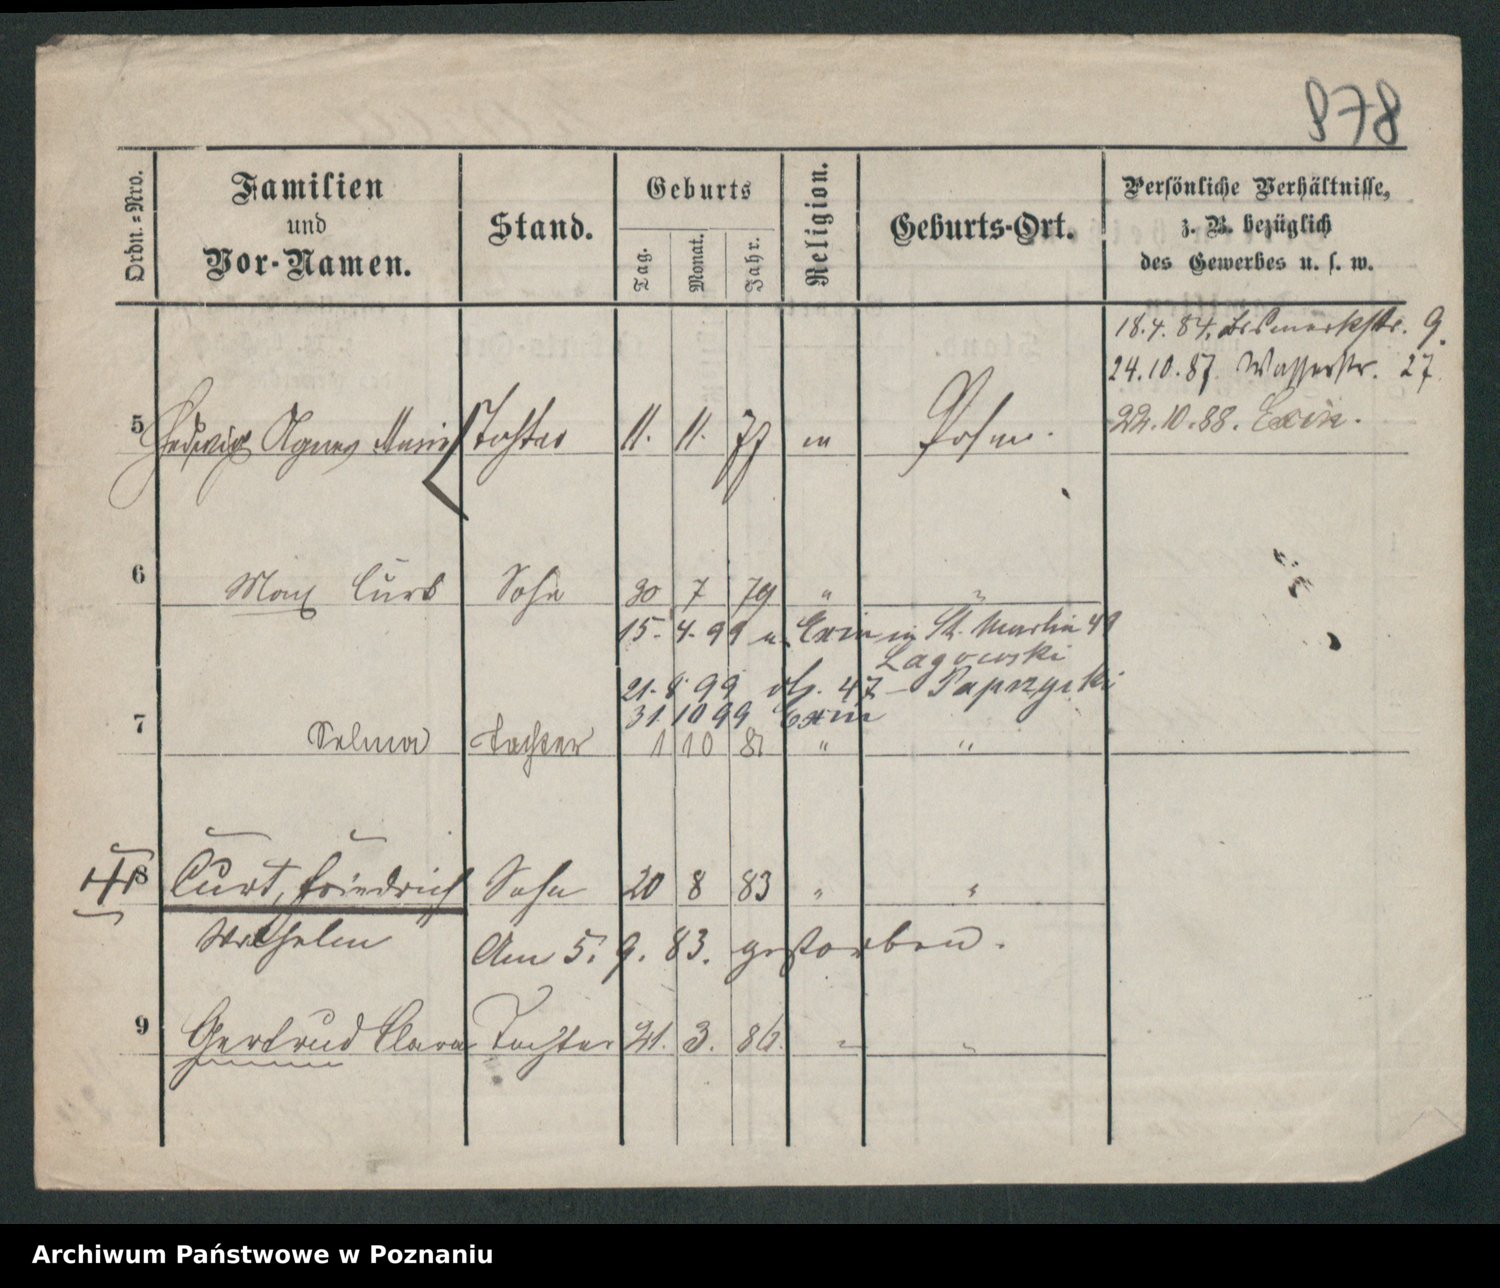 878
Ordn.=Nro.
Familien
und
Vor-Namen.
Stand.
Geburts
Tag.
Monat.
Jahr.
Religion.
Geburts-Ort.
Persönliche Verhältnisse,
z. B. bezüglich
des Gewerbes u. s. w.
18.4.84. Bismarckstr. 9.
24.10.87. Wasserstr. 27.
22.10.88. Exin.
5 Hedwig Agnes Marie Tochter 11. 11. 77 Posen.
6 Max Curt Sohn 30 7 79 " "
15. 4. 99 Exin St. Martin 41
Lagowski
21. 8 99 47 – Paprzycki
31 10 99 Exin
7 Selma Tochter 1 10 81 " "
8 Curt, Friedrich Sohn 20 8 83 " "
Wilhelm Am 5. 9. 83. gestorben.
9 Gertrud Clara Tochter 21. 3. 86. " "
Archiwum Państwowe w Poznaniu